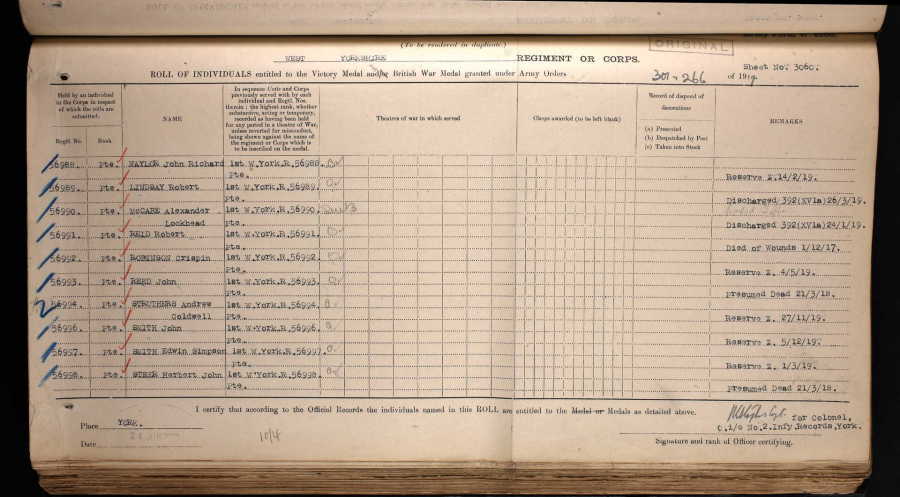 (To be rendered in duplicate)
ORIGINAL
WEST YORKSHIRE REGIMENT OR CORPS.
Sheet No. 3060.
ROLL OF INDIVIDUALS entitled to the Victory Medal and/or British War Medal granted under Army Orders 301, 266 of 1919.
Held by an individual in the Corps in respect of which the rolls are submitted.
Regtl. No.
Rank
NAME
In sequence Units and Corps previously served with by each individual and Regtl. Nos. therein: the highest rank, whether substantive, acting or temporary, recorded as having been held for any period in a theatre of War, unless reverted for misconduct, being shown against the name of the regiment or Corps which is to be inscribed on the medal.
Theatres of war in which served
Clasps awarded (to be left blank)
Record of disposal of decorations
(a) Presented
(b) Despatched by Post
(c) Taken into Stock
REMARKS
56988. Pte. NAYLOR John Richard 1st W.York.R.56988.
Pte. Reserve Z.14/2/19.
56989. Pte. LINDSAY Robert 1st W.York.R.56989.
Pte. Discharged 392(XVIa)26/3/19.
56990. Pte. McCABE Alexander 1st W.York.R.56990.
Lockhead Pte. Discharged 392(XVIa)24/1/19.
56991. Pte. REID Robert 1st W.York.R.56991.
Pte. Died of Wounds 1/12/17.
56992. Pte. ROBINSON Crispin 1st W.York.R.56992.
Pte. Reserve Z. 4/5/19.
56993. Pte. REED John 1st W.York.R.56993.
Pte. Presumed Dead 21/3/18.
56994. Pte. STRUTHERS Andrew 1st W.York.R.56994.
Coldwell Pte. Reserve Z. 27/11/19.
56996. Pte. SMITH John 1st W.York.R.56996.
Pte. Reserve Z. 5/12/19.
56997. Pte. SMITH Edwin Simpson 1st W.York.R.56997.
Pte. Reserve Z. 1/3/19.
56998. Pte. STEER Herbert John 1st W.York.R.56998.
Pte. Presumed Dead 21/3/18.
I certify that according to the Official Records the individuals named in this ROLL are entitled to the Medal or Medals as detailed above.
Place YORK.
for Colonel,
O.i/c No.2.Infy.Records,York.
Date
10/4
Signature and rank of Officer certifying.